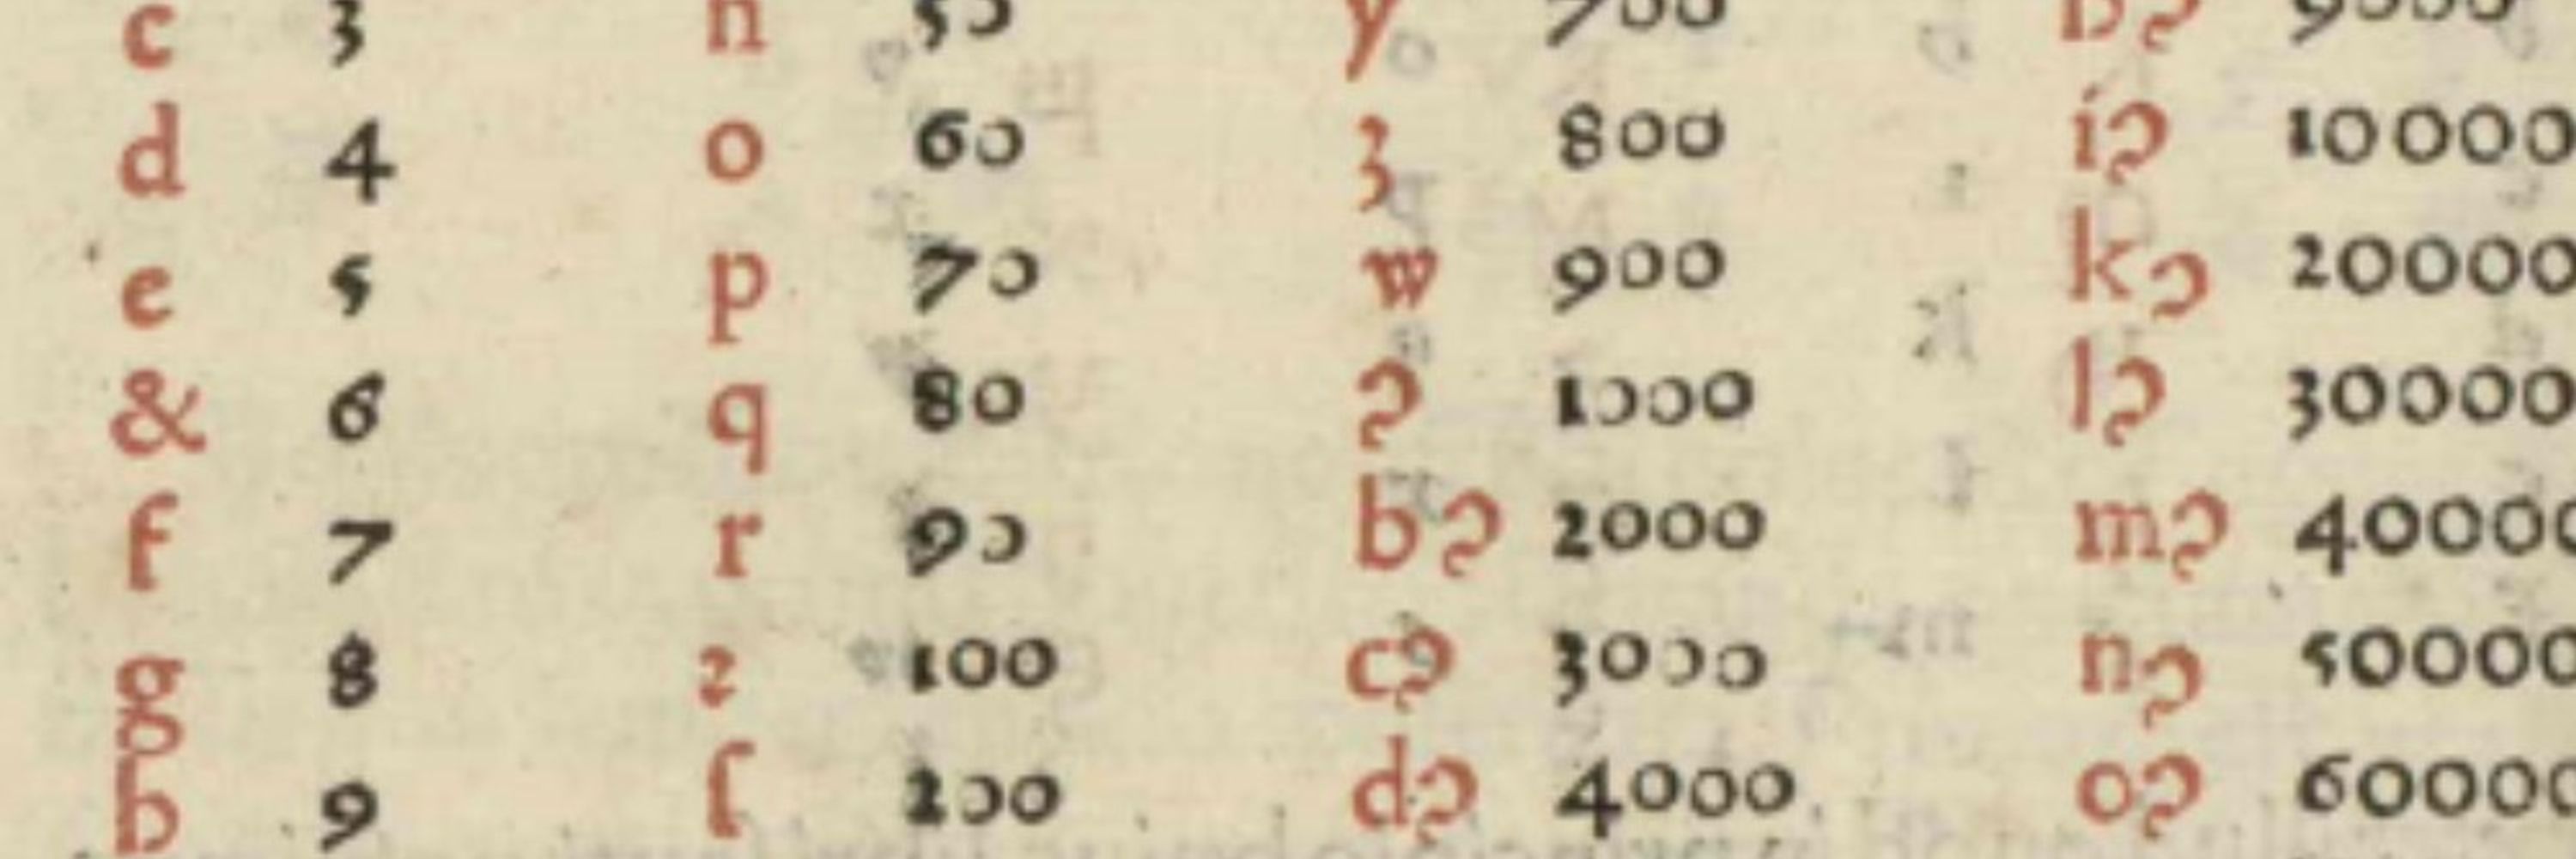 c 3 n 50 y 700 hꝰ 9000
d 4 o 60 ʒ 800 iɂ 10000
e 5 p 70 w 900 kɂ 20000
& 6 q 80 ɂ 1000 lɂ 30000
f 7 r 90 bɂ 2000 mɂ 40000
g 8 ꝛ 100 cɂ 3000 nɂ 50000
h 9 ſ 200 dɂ 4000 oɂ 60000